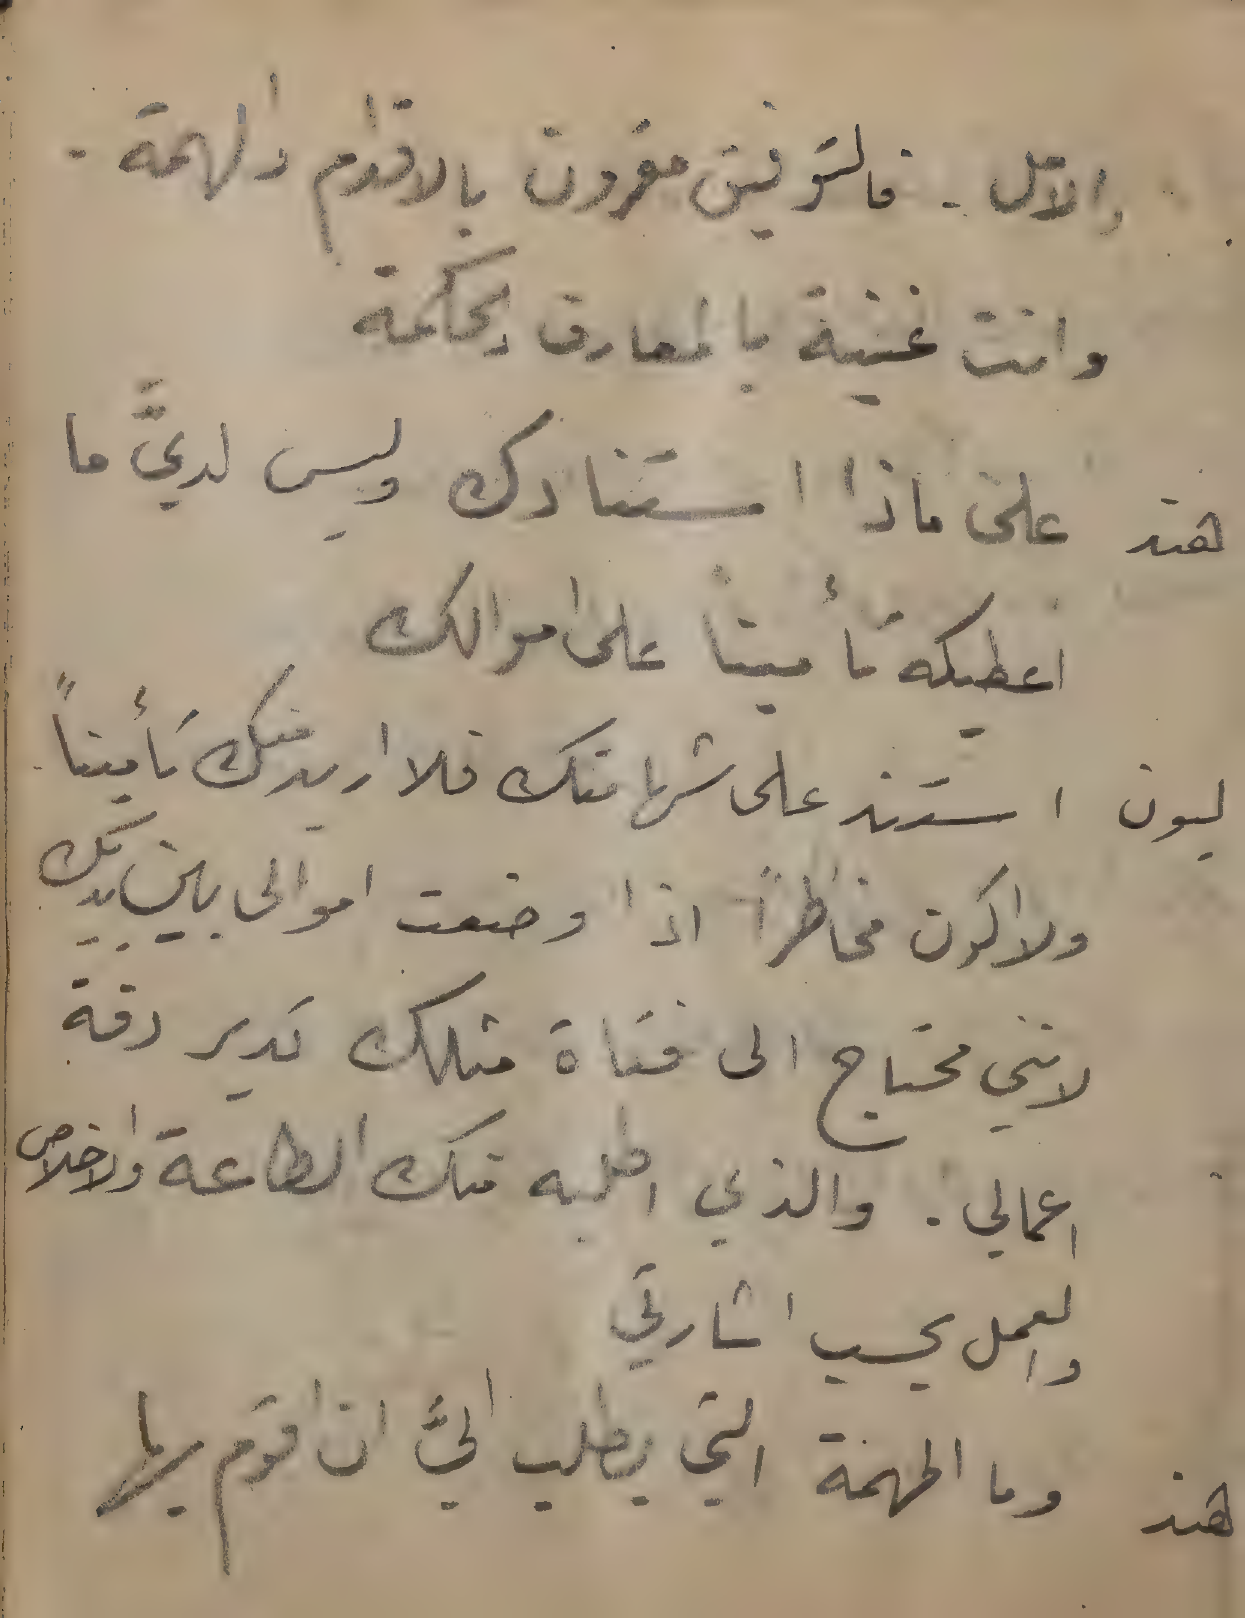 والامل . فالتوفيق مقرون بالاقدام والهمة .
وانت غنية بالمعارف والحكمة
هند على ماذا استنادك وليس لديَّ ما
اعطيكه تأميناً على اموالك
ليون استند على شهامتك فلا اريد منك تأميناً .
ولا اكون مخاطراً اذا وضعت اموالى بين يديك
لانني محتاج الى فتاة مثلك تدير دفة
اعمالي . والذي اطلبه منك الطاعة والاخلاص
والعمل بحسب اشارتي
هند وما المهمة التي يطلب اليَّ ان اقوم بها